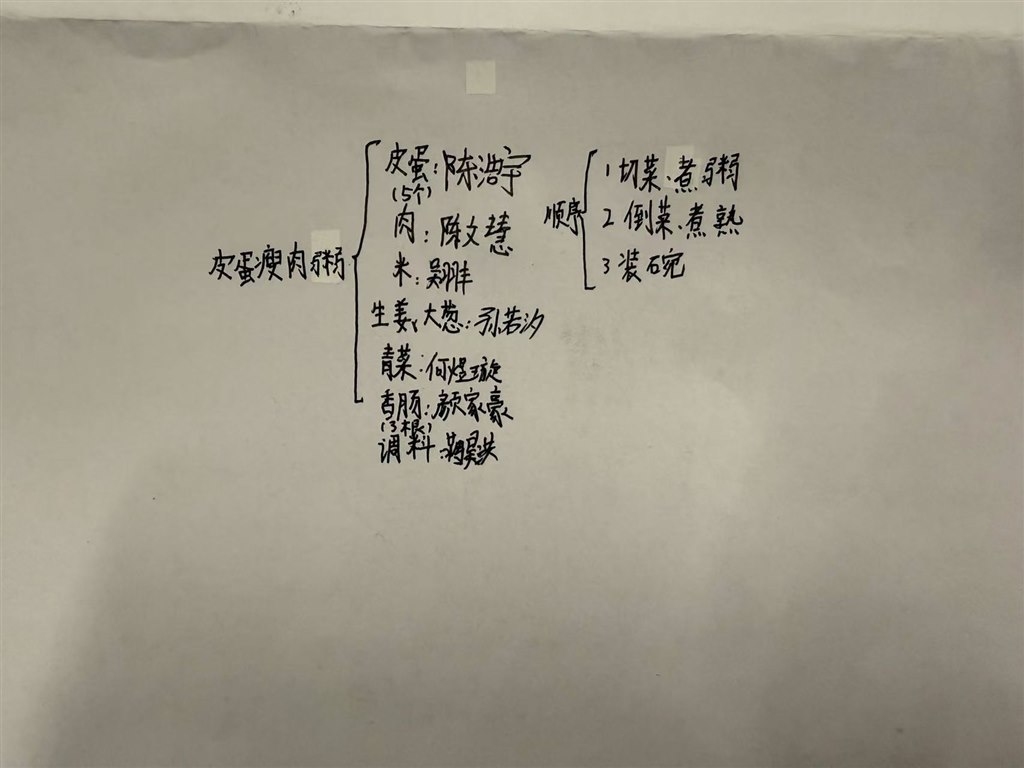 皮蛋瘦肉粥
皮蛋:陈浩宇
(5个)
肉:陈文慧
米:吴翔丰
生姜、大葱:孙若汐
青菜:何煜璇
香肠:颜家豪
(3根)
调料:
顺序
1 切菜、煮粥
2 倒菜、煮熟
3 装碗